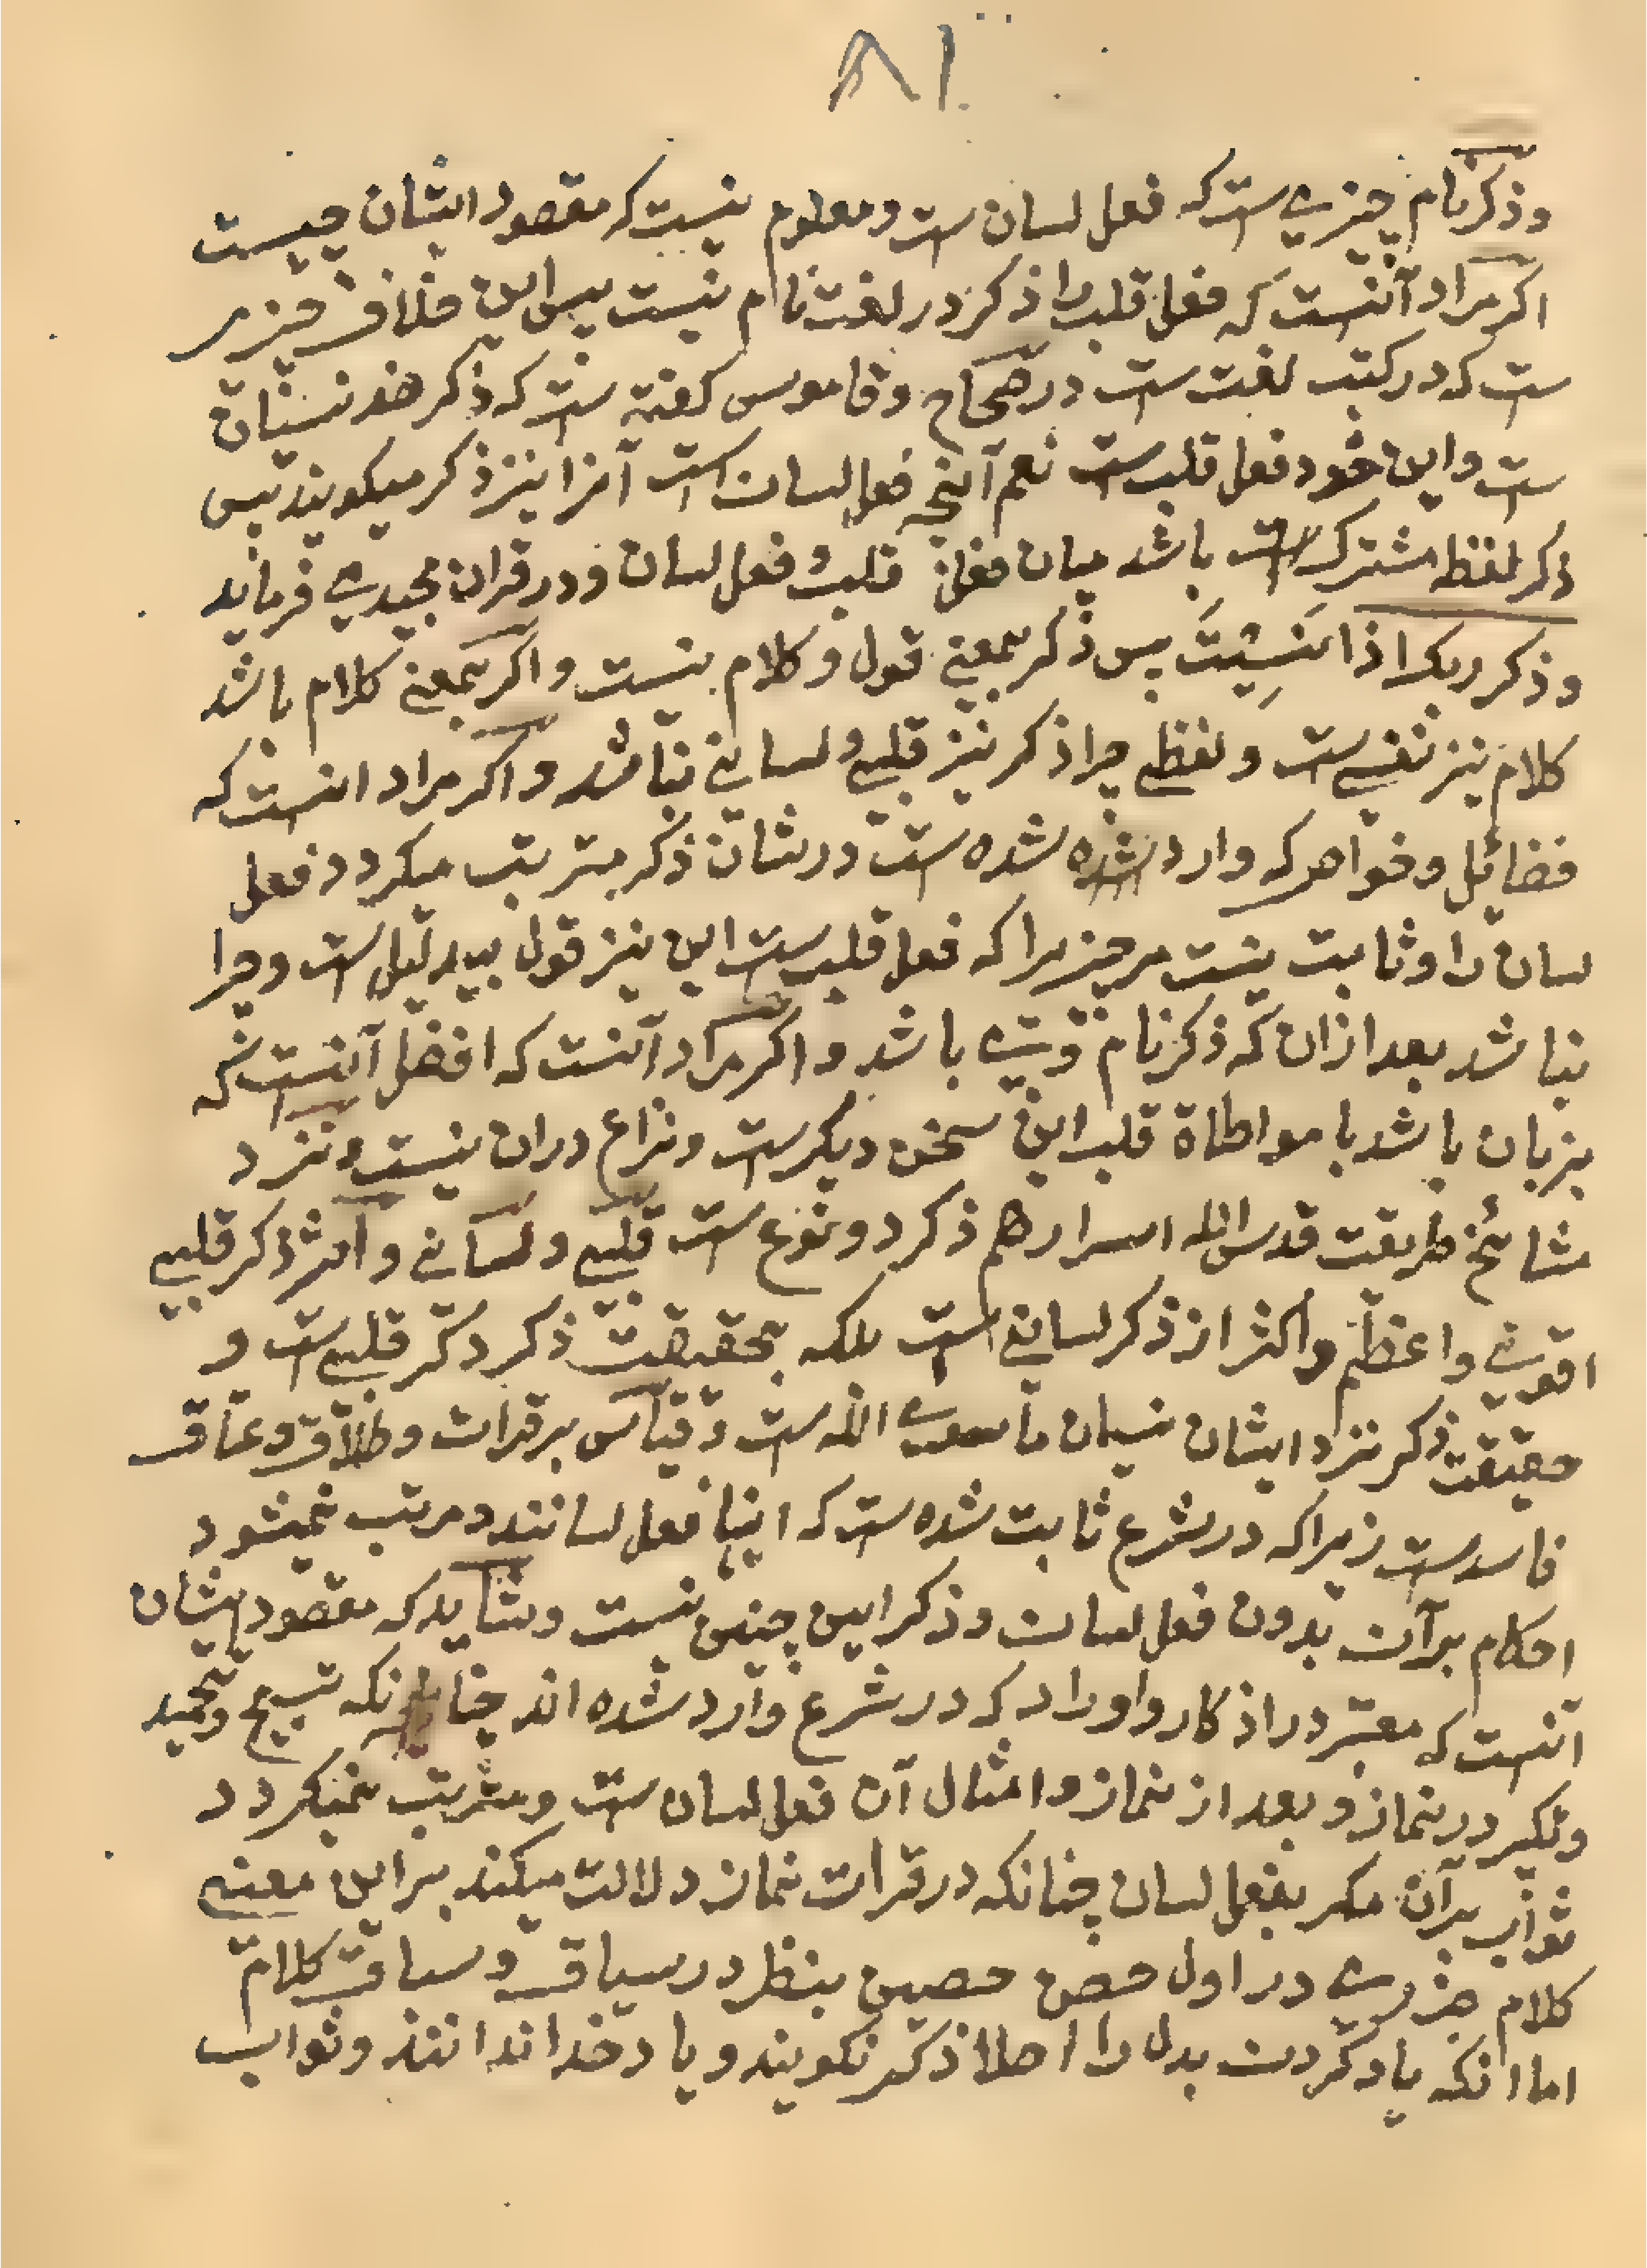 ٨١
و ذکر نام چیزے ست که فعل لسان ست و معلوم نیست که مقصود ایشان چیست
اکر مراد آنست که فعل قلب را ذکر در لغت نام نیست پس این خلاف چیزی
ست که در کتب لغت ست در صحاح و قاموس کفته ست که ذکر ضد نسیان
ست و این خود فعل قلب ست نعم آنچه فعل لسان است آنرا نیز ذکر میکویند پس
ذکر لفظ مشترک ست باشد میان فعل قلب و فعل لسان و در قران مجید می فرماید
و ذکر ربک اذا نَسِیْتَ پس ذکر بمعنے قول و کلام نیست و اکر بمعنے کلام باشد
کلام نیز نفسے ست و لفظے چرا ذکر نیز قلبے و لسانے نباشد و اکر مراد انست که
فضائل و خواهر که وارد شده شده ست در شان ذکر مترتب میکردد فعل
لسان را و ثابت نیست مر چیز را که فعل قلب ست این نیز قول بیدلیل ست و چرا
نباشد بعد ازان که ذکر نام وے باشد و اکر مراد آنست که افضل آنست که
بزبان باشد با مواطاة قلب این سخن دیکر ست و نزاع دران نیست و نزد
مشائخ طریقت قدس الله اسرارهم ذکر دو نوع ست قلبے و لسانے و اثر ذکر قلبے
اقوے و اعظم و اکثر از ذکر لسانے است بلکه بحقیقت ذکر ذکر قلبے ست و
حقیقت ذکر نزد ایشان نسیان ما سوے الله ست و قیاس بر قرات و طلاق و عتاق
فاسد ست زیرا که در شرع ثابت شده ست که اینها فعل لسانند و مرتب نمیشود
احکام بر آن بدون فعل لسان و ذکر این چنین نیست و شاید که مقصود ایشان
آنست که معتبر در اذکار و اوراد که در شرع وارد شده اند چنانکه تسبیح و تحمید
و تکبیر در نماز و بعد از نماز و امثال آن فعل لسان ست و مترتب نمیکردد
ثواب بر آن مکر بفعل لسان چنانکه در قرات نماز دلالت میکند بر این معنے
کلام جزرے در اول حصن حصین بنظر در سیاق و سباق کلام
اما انکه یاد کردن بدل را اصلا ذکر نکویند و یاد خدا ندانند و ثواب